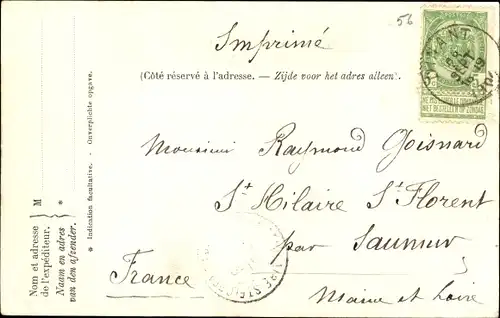 56
Imprimé
(Côté réservé à l'adresse. — Zijde voor het adres alleen.)
Monsieur Raymond Goisnard
St Hilaire St Florent
par Saumur
France
Maine et Loire
Nom et adresse
de l'expéditeur.
M
Naam en adres
van den afzender.
*
* Indication facultative. - Onverplichte opgave.
DINANT
NE PAS LIVRER LE DIMANCHE
NIET BESTELLEN OP ZONDAG